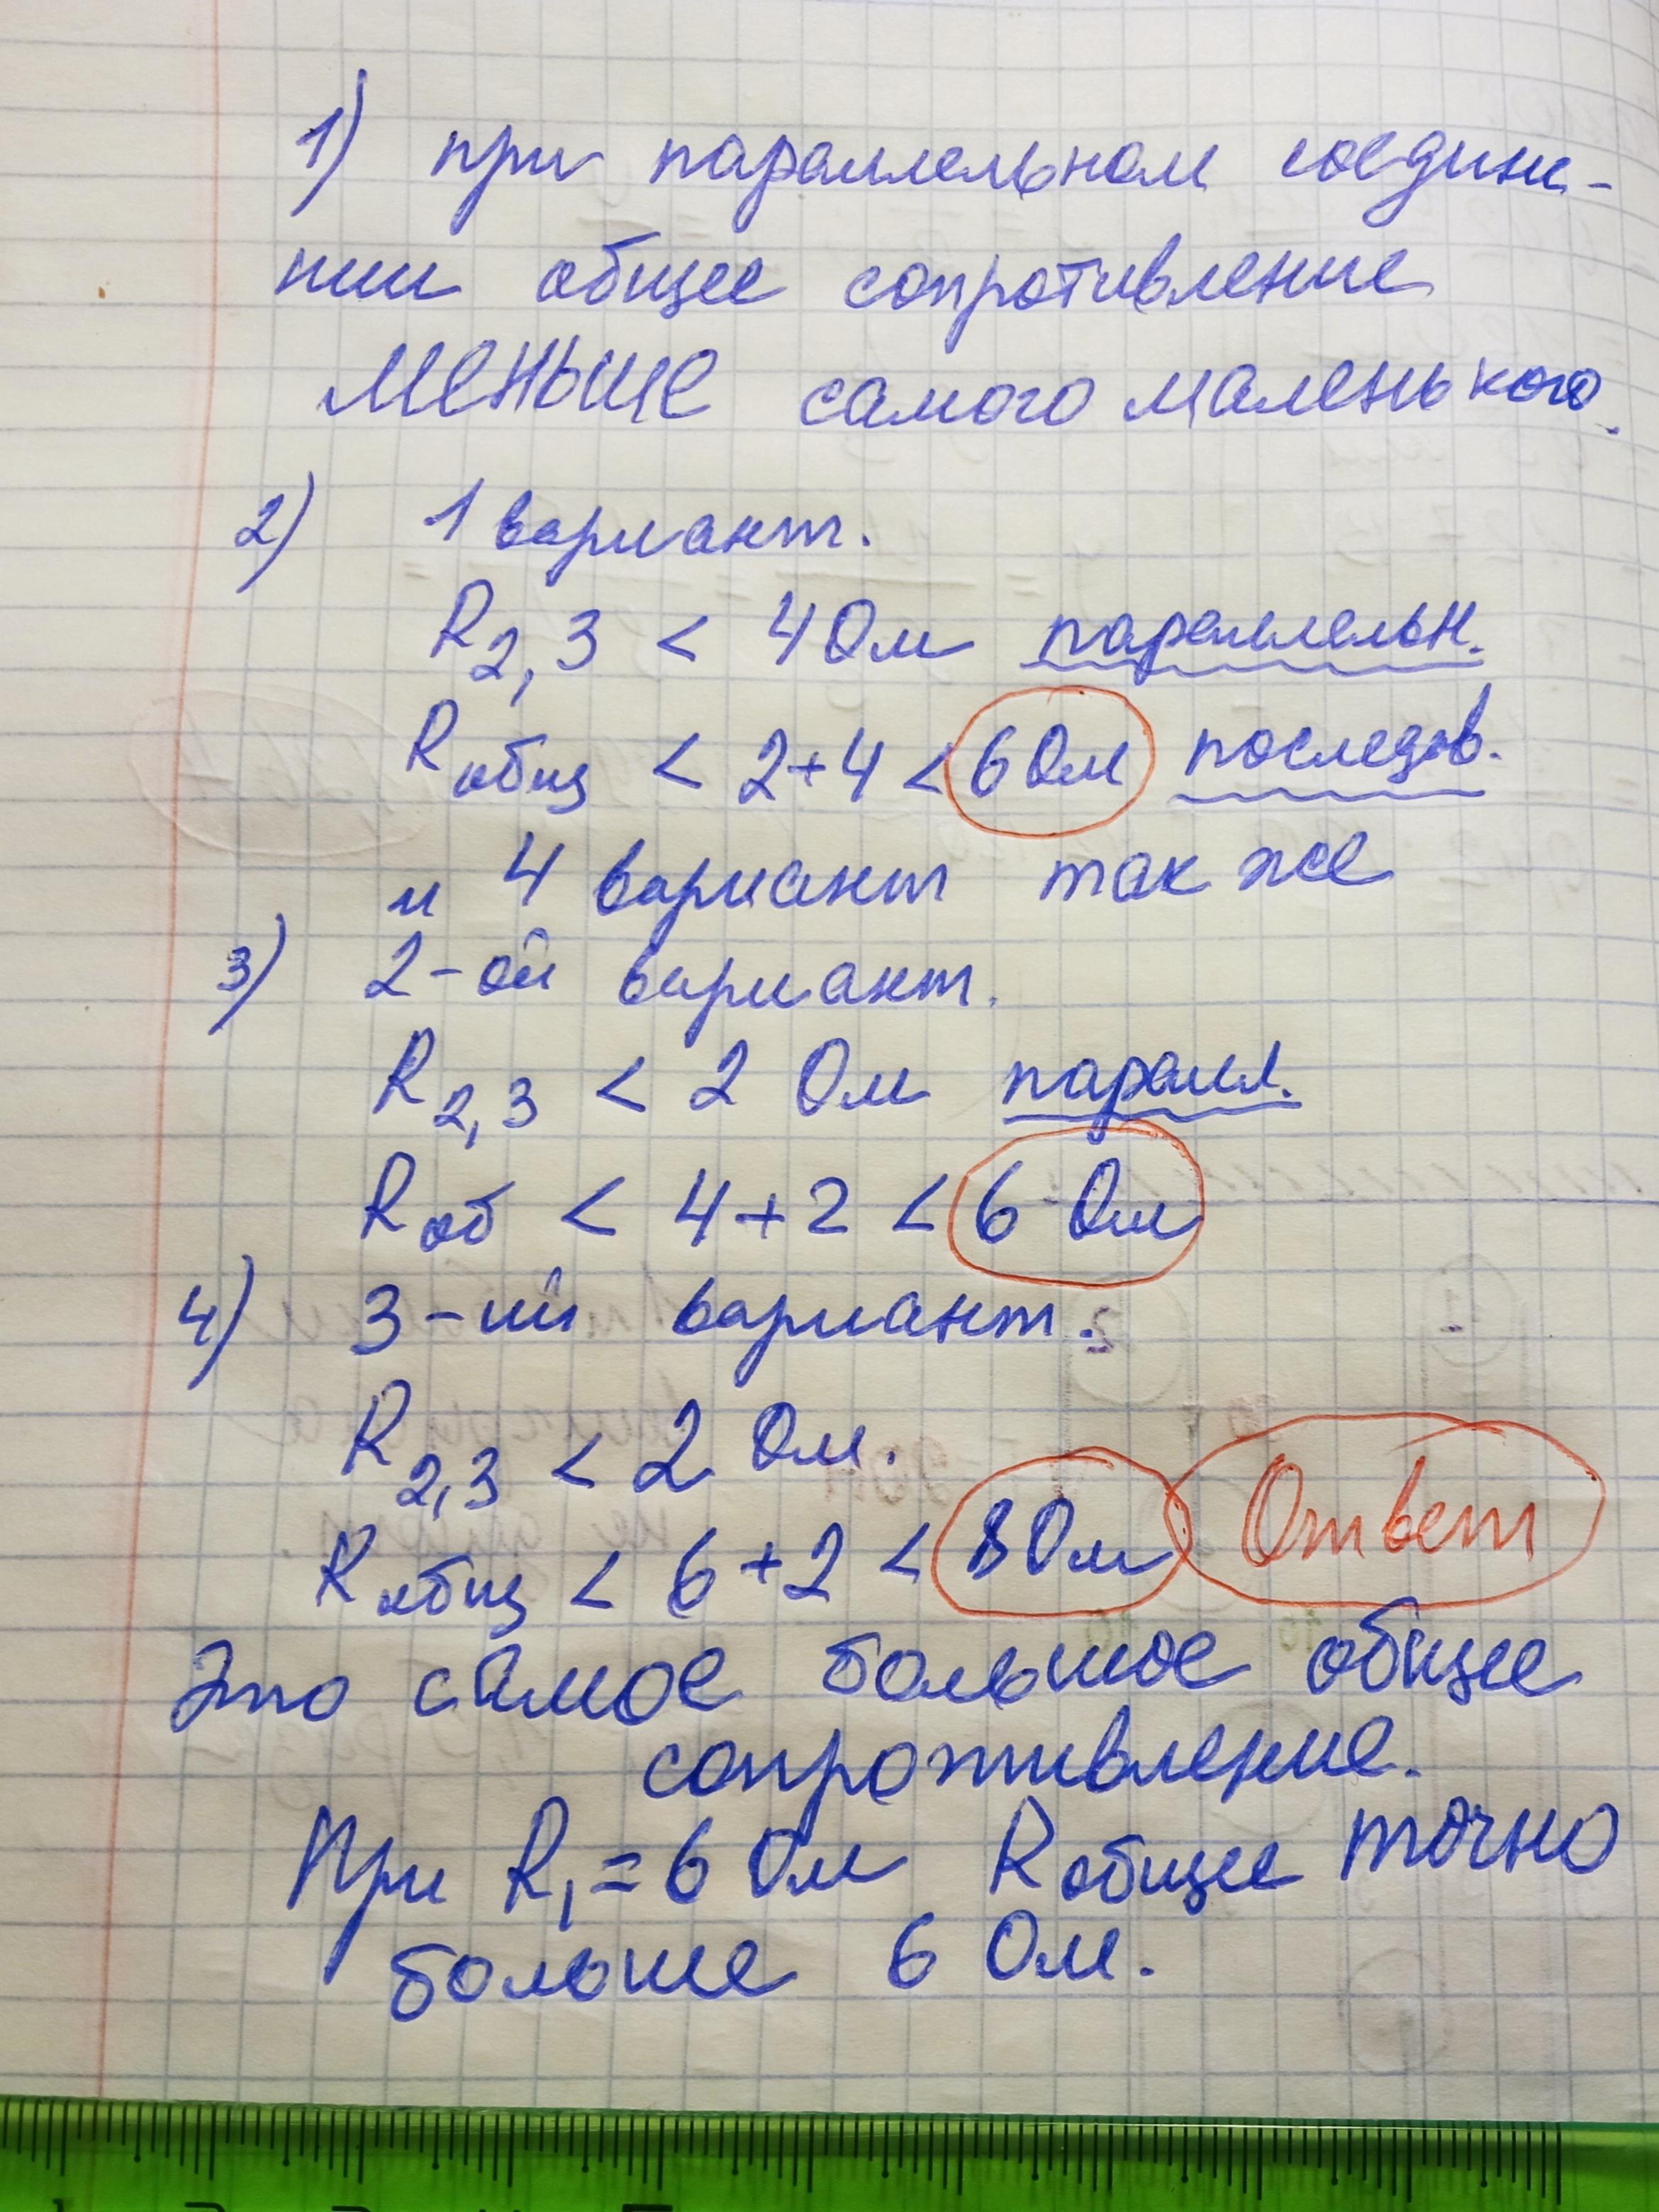 1) при параллельном соедине-
нии общее сопротивление
меньше самого маленького.
2) 1 вариант.
R2,3 < 4 Ом параллельн.
Rобщ < 2+4 < 6 Ом последов.
и 4 вариант так же
3) 2-ой вариант.
R2,3 < 2 Ом паралл.
Rоб < 4+2 < 6 Ом
4) 3-ий вариант.
R2,3 < 2 Ом.
Rобщ < 6+2 < 8 Ом Ответ
Это самое большое общее
сопротивление.
При R1=6 Ом Rобщее точно
больше 6 Ом.